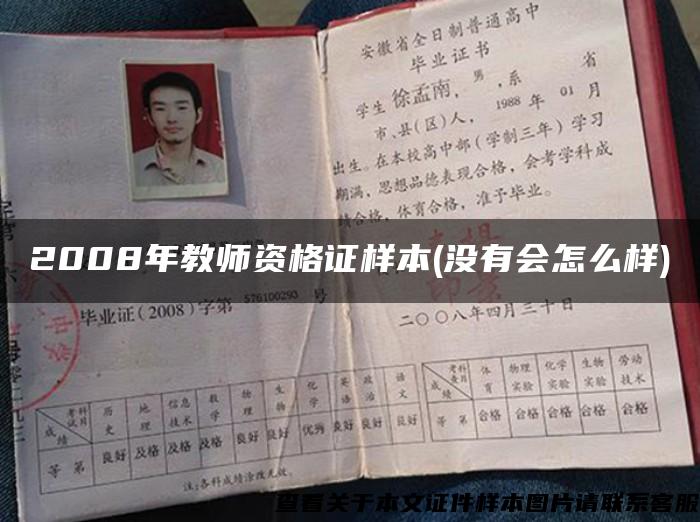 安徽省全日制普通高中
毕业证书
学生徐孟南,男,系 省
市、县(区)人,1988年01月
出生。在本校高中部(学制三年)学习
期满,思想品德表现合格,会考学科成
绩合格,体育合格,准予毕业。
2008年教师资格证样本(没有会怎么样)
毕业证(2008)字第576100293号
二〇〇八年四月三十日
考试科目 历史 地理 信息技术 数学 物理 生物 化学 英语 政治 语文
成绩 等第 良好 及格 及格 及格 良好 良好 优秀 良好 良好 良好
注:各科成绩涂改无效。
考查科目 体育 物理实验 化学实验 生物实验 劳动技术
成绩 等第 合格 合格 合格 合格 合格
查看关于本文证件样本图片请联系客服